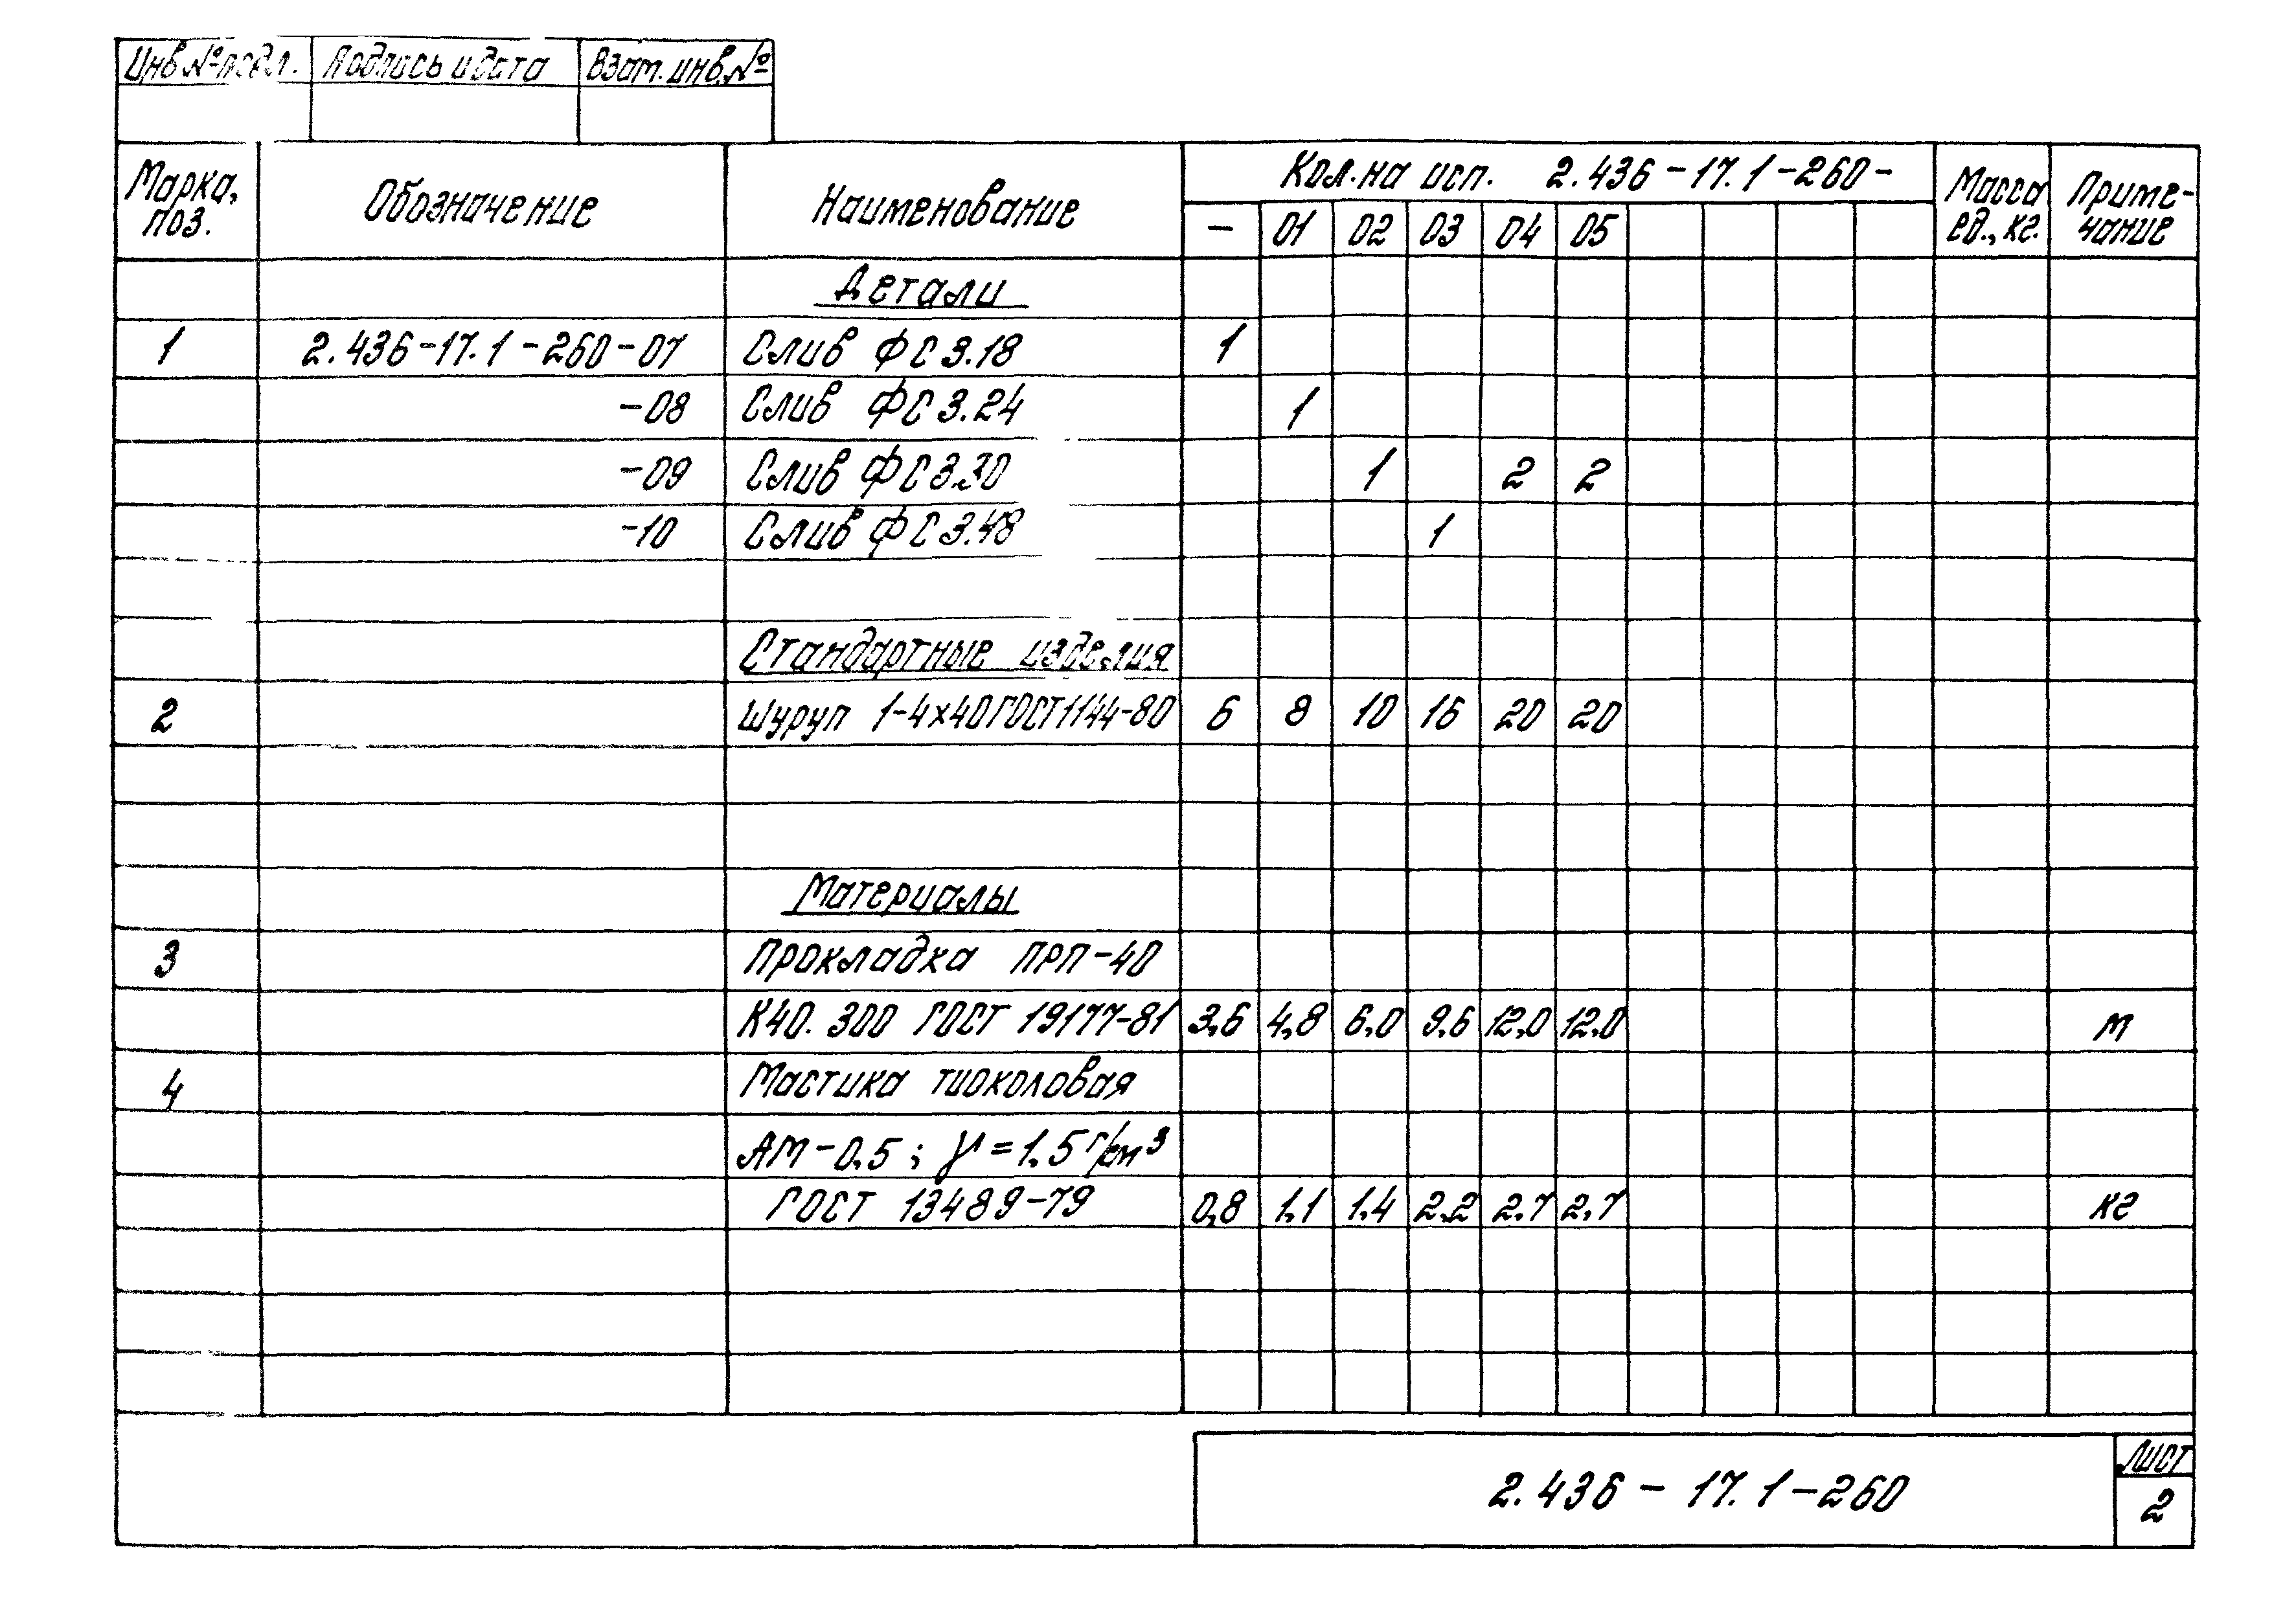 Инв.№ подл. Подпись и дата Взам. инв. №
Марка, поз. Обозначение Наименование Кол. на исп. 2.436-17.1-260- Масса ед., кг. Приме-чание
- 01 02 03 04 05
Детали
1 2.436-17.1-260-07 Слив ФС 3.18 1
-08 Слив ФС 3.24 1
-09 Слив ФС 3.30 1 2 2
-10 Слив ФС 3.48 1
Стандартные изделия
2 Шуруп 1-4х40 ГОСТ 1144-80 6 8 10 16 20 20
Материалы
3 Прокладка ПРП-40
К40. 300 ГОСТ 19177-81 3,6 4,8 6,0 9,6 12,0 12,0 м
4 Мастика тиоколовая
АМ-0,5; γ=1,5 г/см³
ГОСТ 13489-79 0,8 1,1 1,4 2,2 2,7 2,7 кг
2.436-17.1-260 Лист
2